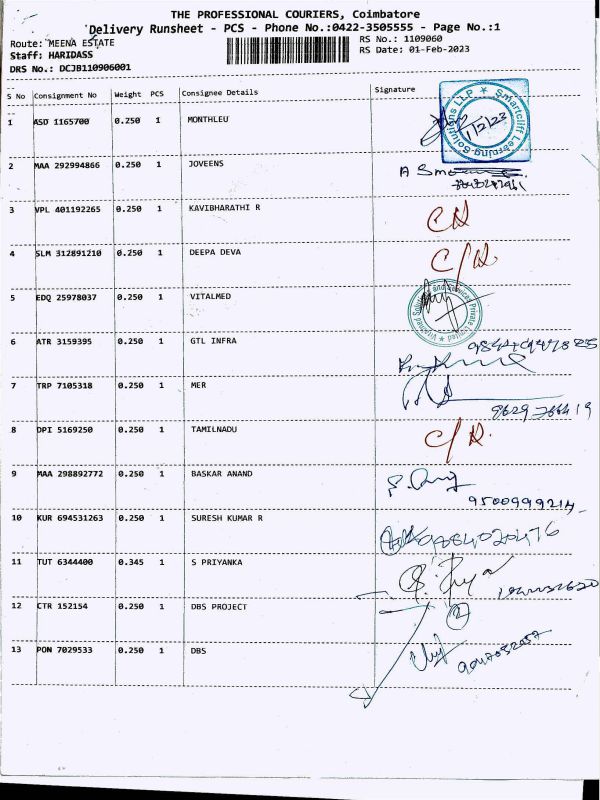 THE PROFESSIONAL COURIERS, Coimbatore
Delivery Runsheet - PCS - Phone No.:0422-3505555 - Page No.:1
Route: MEENA ESTATE
RS No.: 1109060
Staff: HARIDASS
RS Date: 01-Feb-2023
DRS No.: DCJB110906001
S No Consignment No Weight PCS Consignee Details Signature
1 ASD 1165700 0.250 1 MONTHLEU
Smartcliff Learning Solutions LLP
1/2/23
2 MAA 292994866 0.250 1 JOVEENS
3 VPL 401192265 0.250 1 KAVIBHARATHI R
4 SLM 312891210 0.250 1 DEEPA DEVA C/R.
5 EDQ 25978037 0.250 1 VITALMED
6 ATR 3159395 0.250 1 GTL INFRA
7 TRP 7105318 0.250 1 MER
8 DPI 5169250 0.250 1 TAMILNADU C/R.
9 MAA 298892772 0.250 1 BASKAR ANAND
9500999214
10 KUR 694531263 0.250 1 SURESH KUMAR R
11 TUT 6344400 0.345 1 S PRIYANKA
12 CTR 152154 0.250 1 DBS PROJECT 2
13 PON 7029533 0.250 1 DBS